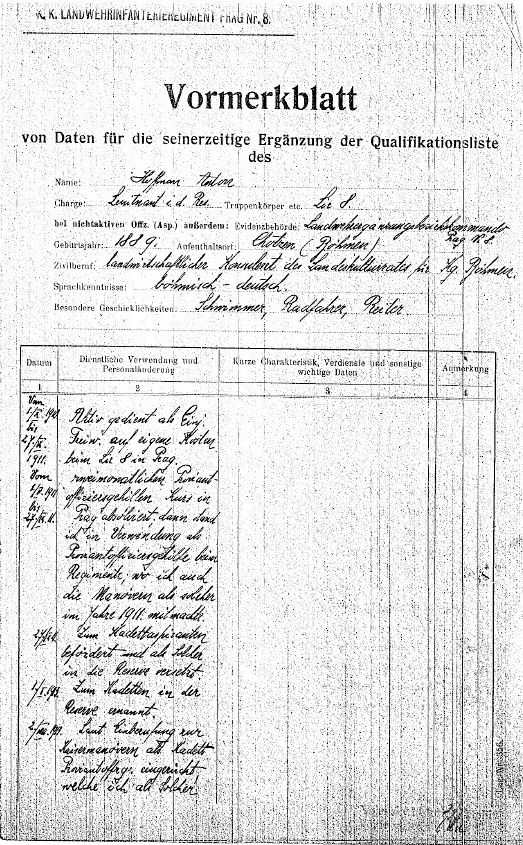 K. K. LANDWEHRINFANTERIEREGIMENT PRAG Nr. 8.
Vormerkblatt
von Daten für die seinerzeitige Ergänzung der Qualifikationsliste
des
Name: Anton
Charge: Leutnant i. d. Res. Truppenkörper etc. Lir 8.
bei nichtaktiven Offz. (Asp.) außerdem: Evidenzbehörde: Landwehrergänzungsbezirkskommando
Prag N. 8
Geburtsjahr: 1889. Aufenthaltsort: Chotzen (Böhmen)
Zivilberuf: landwirtschaftlicher Konsulent des Landeskulturrates für Kg. Böhmen.
Sprachkenntnisse: böhmisch - deutsch.
Besondere Geschicklichkeiten: Schwimmer, Radfahrer, Reiter.
Datum
Dienstliche Verwendung und Personaländerung
Kurze Charakteristik, Verdienste und sonstige wichtige Daten
Anmerkung
1 2 3 4
Vom
Aktiv gedient als Einj.
bis
Freiw. auf eigene Kosten
1911. beim Lir 8 in Prag.
Vom zweimonatlichen Proviant
offiziersgehilfen Kurs in
bis Prag absolviert dann stand
ich in Verwendung als
Proviantoffiziersgehilfe beim
Regimente, wo ich auch
die Manövern als solcher
im Jahre 1911. mitmachte.
Zum Kadettaspiranten
befördert und als Solcher
in die Reserve versetzt.
Zum Kadetten in der
Reserve ernannt.
Laut Einberufung zur
Kaisermanövern als Kadett
eingerückt
welche ich als Solcher